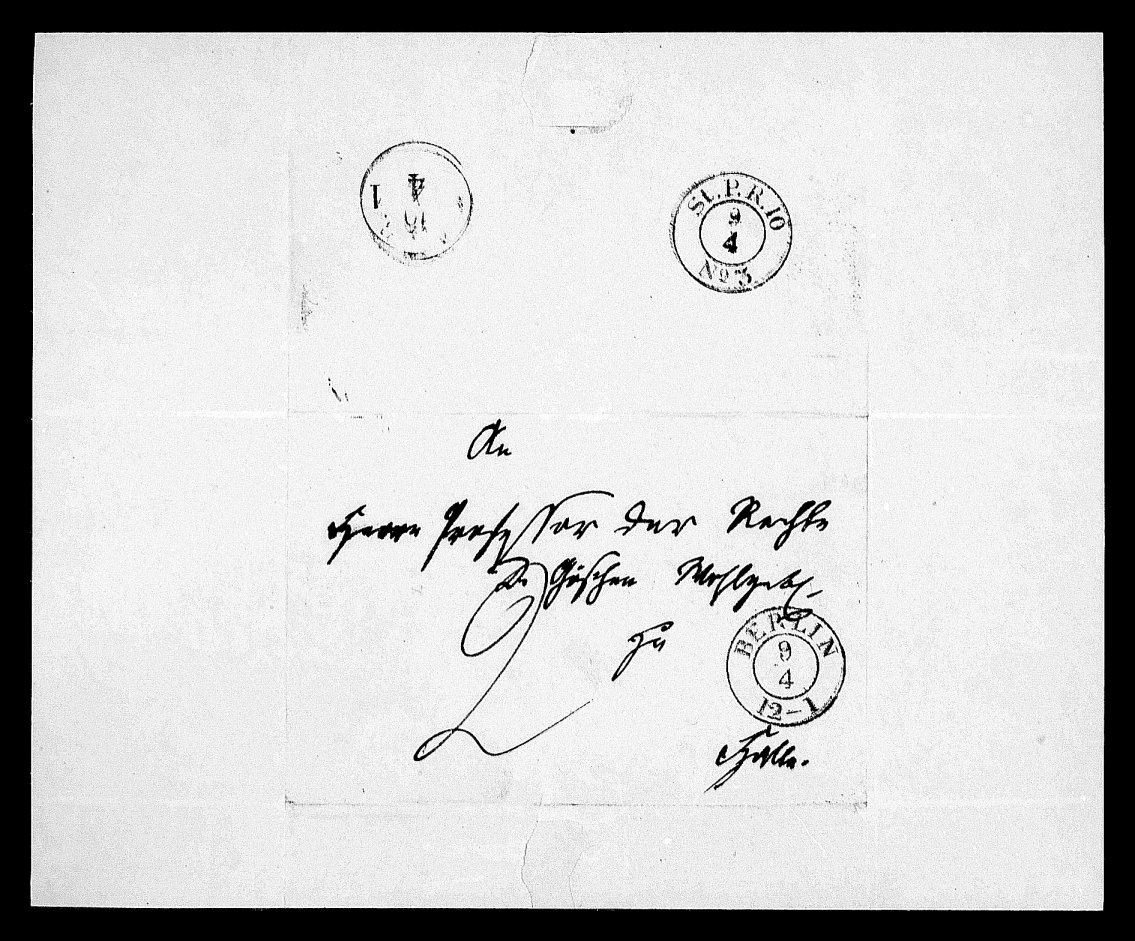 St. P. R. 10
9
4
No 3
An
Herrn Professor der Rechte
Dr Göschen Wohlgeb.
2
zu
BERLIN
9
4
12-1
Halle.